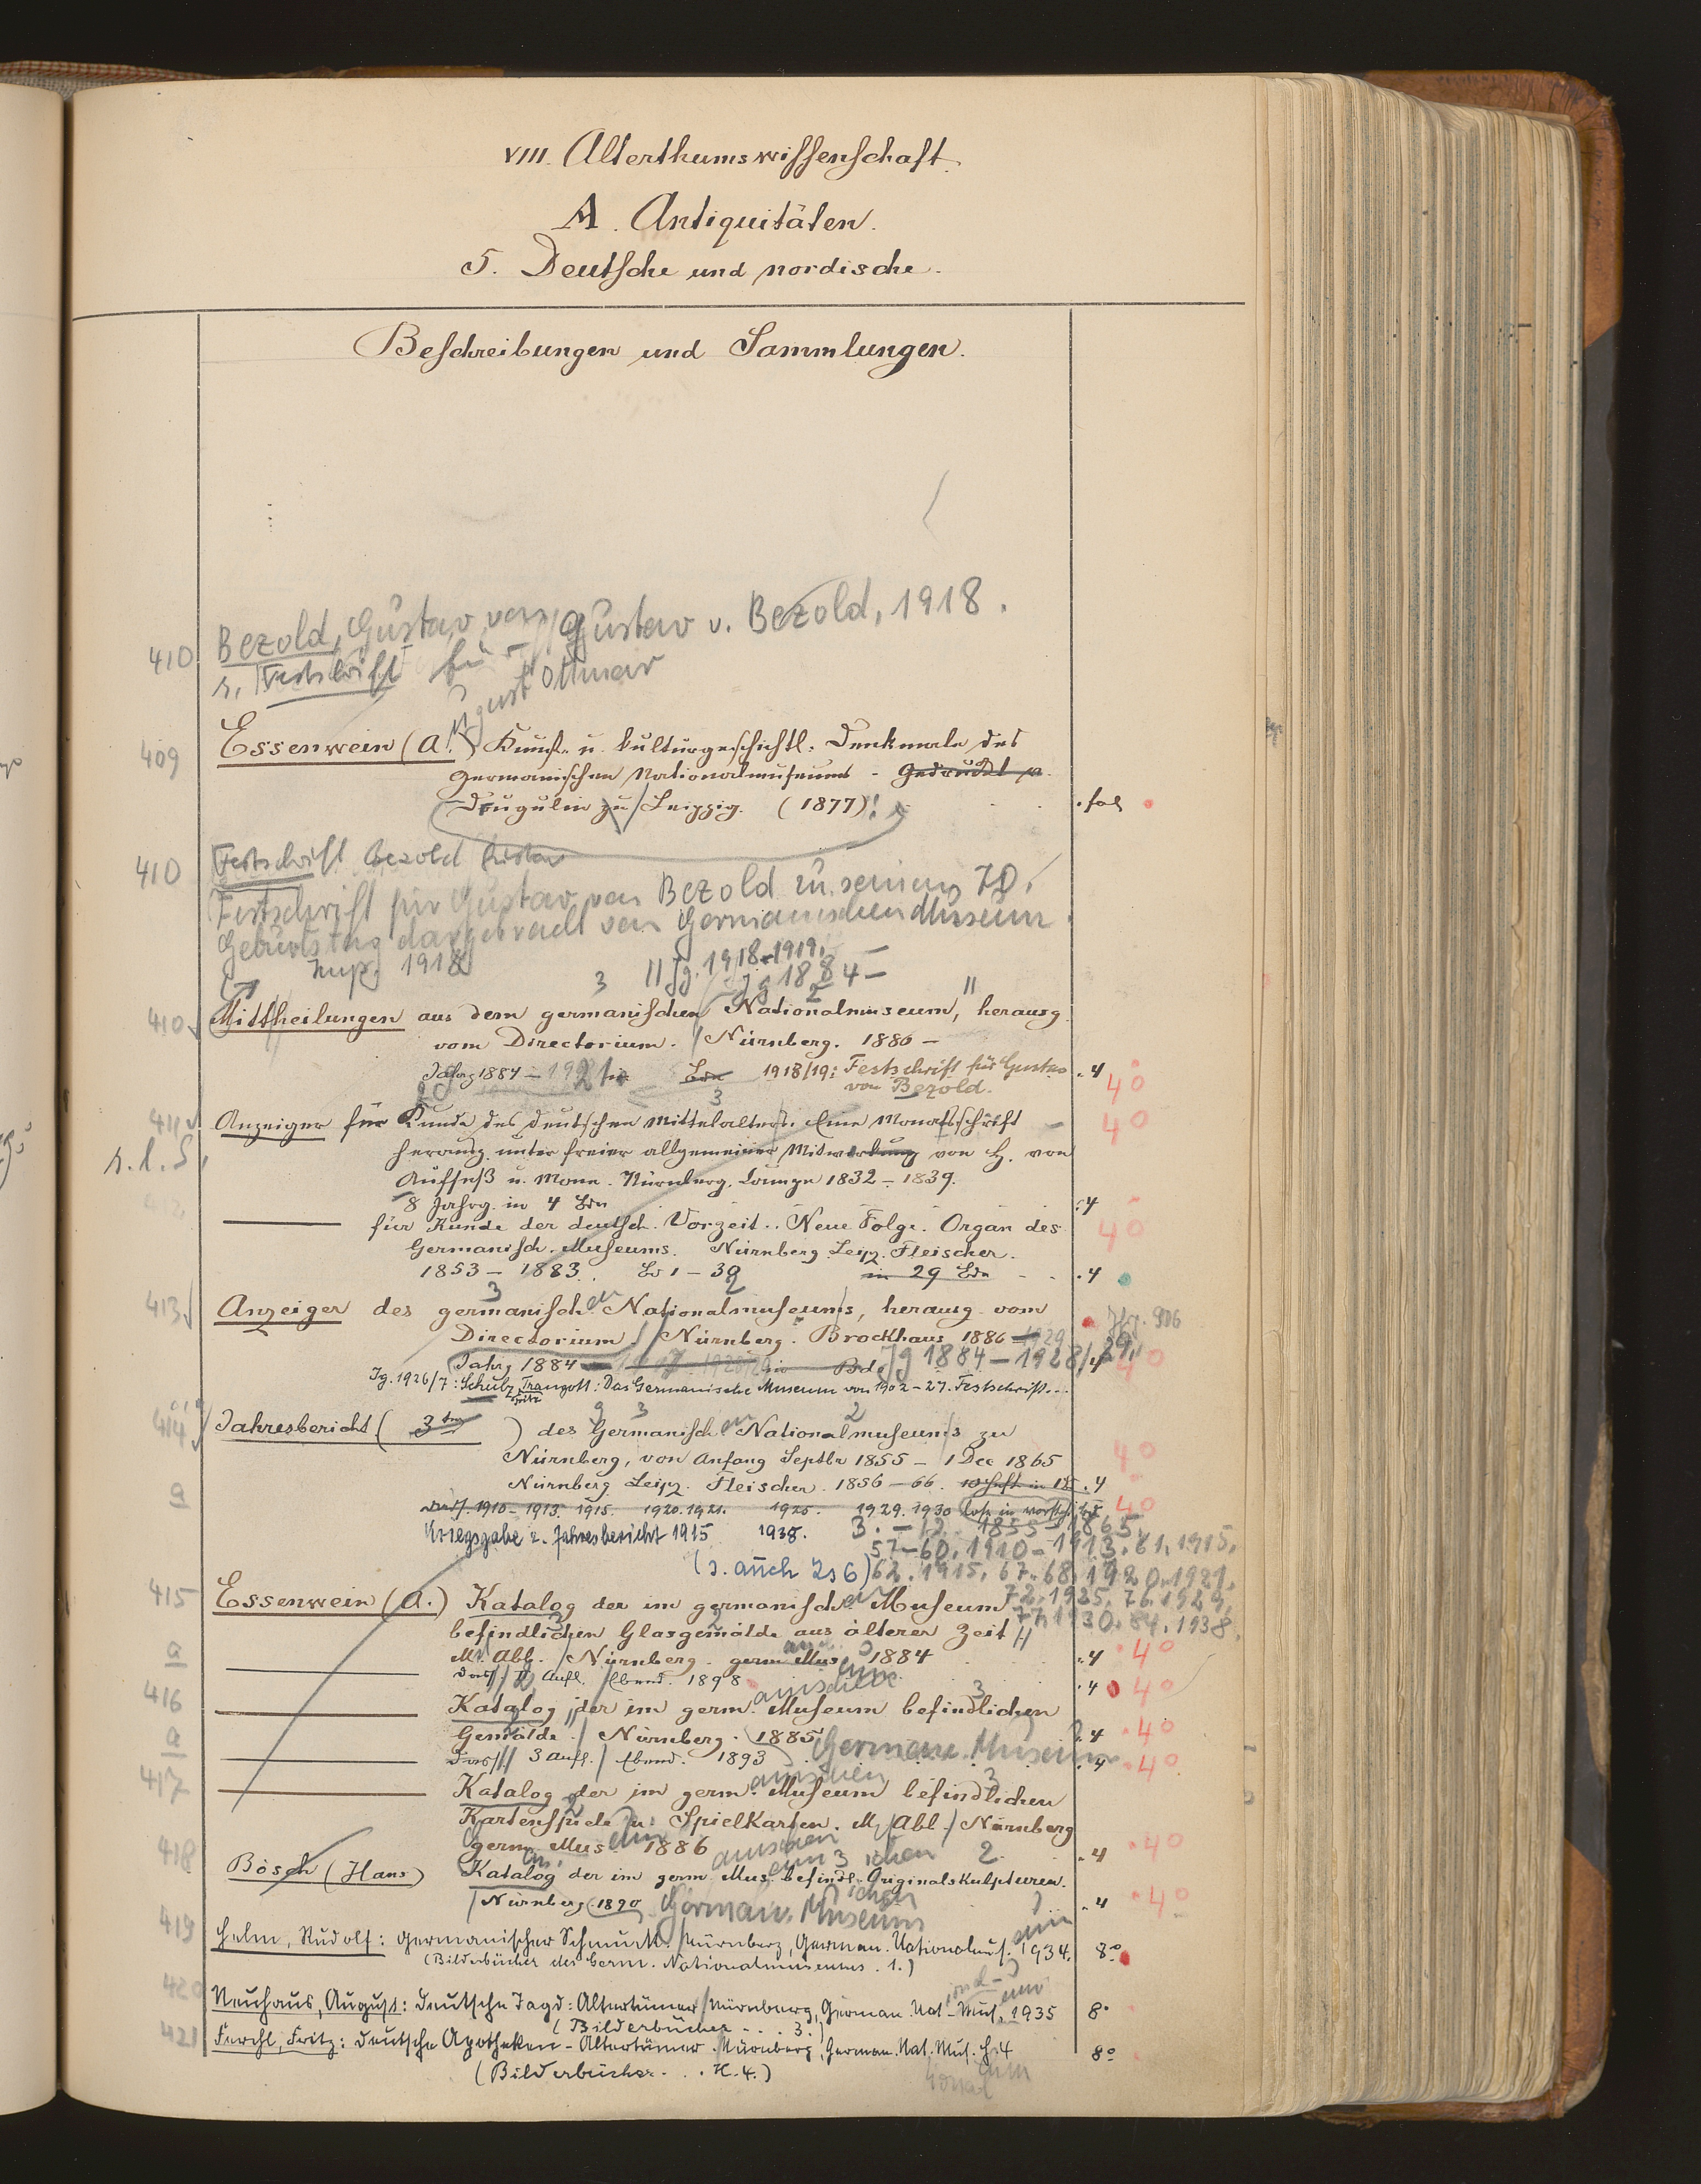 VIII. Alterthumswissenschaft.
A. Antiquitäten.
5. Deutsche und nordische.
Beschreibungen und Sammlungen.
410 Bezold, Gustav von Gustav v. Bezold, 1918.
s. Festschrift für
August Ottmar
409 Essenwein (A.) Kunst- u. kulturgeschichtl. Denkmale des
Germanischen Nationalmuseums - Gedruckt v.
Drugulin zu Leipzig. (1877)! fol
410 Festschrift Bezold
Festschrift für Gustav von Bezold zu seinem 70.
Geburtstag dargebracht vom Germanischen Museum.
1918
3 Jg. 1918-1919. —
Jg 1884 —
410 Mittheilungen aus dem germanischen Nationalmuseum, herausg.
vom Directorium. Nürnberg. 1886 —
Jahrg 1884 — 1921 in Bdn 1918/19: Festschrift für Gustav 4
von Bezold. 40
411 Anzeiger für Kunde des deutschen Mittelalters. Eine Monatsschrift 40
s. l. S. herausg. unter freier allgemeiner Mitwirkung von H. von
Aufseß u. Mone. Nürnberg. 1832 - 1839.
8 Jahrg. in 4 Bdn 4
für Kunde der deutsch. Vorzeit.. Neue Folge. Organ des 40
Germanisch. Museums. Nürnberg. Leipz. Fleischer.
1853 - 1883. Bd 1 - 30 in 29 Bdn 4
413 Anzeiger des germanischen Nationalmuseums, herausg. vom
Directorium. Nürnberg. Brockhaus 1886 — 1929
Jahrg 1884 in Bdn Jg 1884 — 1928/29, 4 40
Jg. 1926/7: Schulz, Fritz Traugott: Das Germanische Museum von 1902-27. Festschrift...
414 Jahresbericht (3ter) des Germanischen Nationalmuseums zu
Nürnberg, von Anfang Septbr 1855 - 1 Dec 1865 40
a Nürnberg Leipz. Fleischer. 1856 - 66. 10 Heft in 4
1910 - 1913. 1915. 1920.1921. 1925. 1929. 1930 lose in 40
Kriegsgabe z. Jahresbericht 1915 1938. 3. - 12. 1855-1865,
57-60. 1910-1913. 61. 1915.
(s. auch 256) 62. 1915. 67-68. 1920-1921.
72. 1925. 76. 1929,
77. 1930. 84. 1938.
415 Essenwein (A.) Katalog der im germanischen Museum
befindlichen Glasgemälde aus älterer Zeit
Mit Abb. Nürnberg. germ. Mus. 1884 4 40
a 2 Aufl. Ebend. 1898 4 40
416 Katalog der im germ. Museum befindlichen
Gemälde. Nürnberg. 1885. 4 40
a 3 Aufl. Ebend. 1893 German. Museum 4 40
417 Katalog der im germ. Museum befindlichen
Kartenspiele u. Spielkarten. M. Abb. Nürnberg
germ. Mus. 1886 4 40
418 Bösch (Hans) Katalog der im germ. Mus. befindl. Originalskulpturen.
Nürnberg. 1890 German. Museum 4 40
419 Helm, Rudolf: Germanischer Schmuck. Nürnberg, German. Nationalmus. 1934. 8°
(Bilderbücher des Germ. Nationalmuseums. 1.)
420 Neuhaus, August: Deutsche Jagd: Altertümer Nürnberg, German. Nat-Mus. 1935 8°
(Bilderbücher - . . 3.)
421 Ferchl, Fritz: Deutsche Apotheken-Altertümer. Nürnberg, German. Nat. Mus. H 4 8°
(Bilderbücher. . . H. 4.)